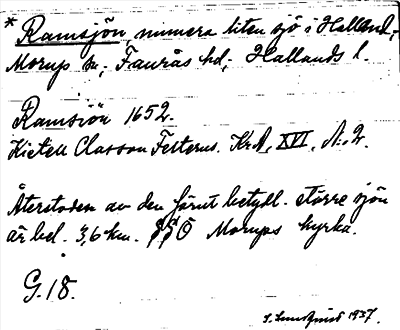 * Ramsjön, numera liten sjö i Halland,
Morups sn, Faurås hd, Hallands l.
Ramsiön 1652.
Kietell Classon Felterus. KrA, XVI, N:2.
Återstoden av den förut betydl. större sjön
är bel. 3,6 km. Ö Morups kyrka.
G. 18.
S. Lundquist 1937.